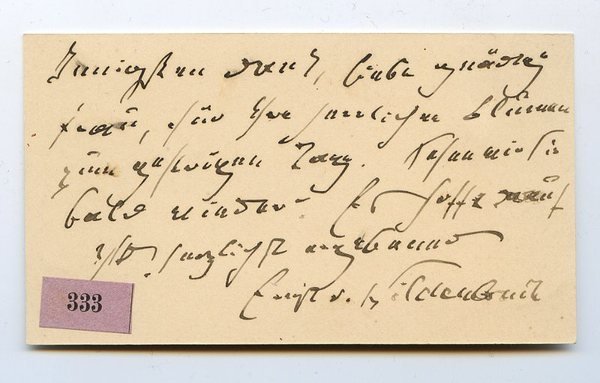 Innigsten Dank, liebe gnädige
Frau, für Ihre herrlichen Blumen
zum gestrigen Tag. Sehen wir Sie
bald wieder? Es hofft
Ihr herzlichst ergebener
Ernst v. Wildenbruch
333